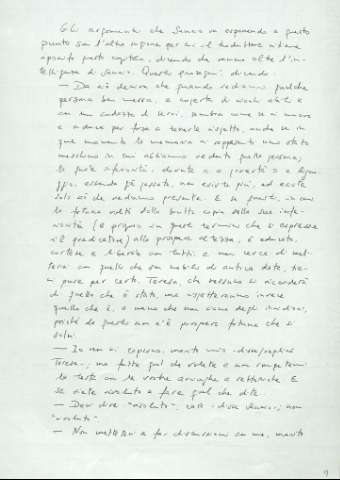 Gli argomenti che Sancio va esponendo a questo
punto son l'altra ragione per cui il traduttore ritiene
apocrifo questo capitolo, dicendo che vanno oltre l'in-
telligenza di Sancio. Questi proseguì, dicendo:
— Da ciò deriva che quando vediamo qualche
persona ben messa, e coperta di ricchi abiti e
con un codazzo di servi, sembra come se ci muova
e induca per forza a tenerle rispetto, anche se in
quel momento la memoria ci rappresenta uno stato
meschino in cui abbiamo veduto quella persona;
la quale inferiorità, dovuta o a povertà o a lignag-
gio, essendo già passata, non esiste più, ed esiste
solo ciò che vediamo presente. E se questi, in cui
la fortuna voltò dalla brutta copia della sua infe-
riorità (è proprio in questi termini che si espresse
il predicatore) alla prospera altezza, è educato,
cortese e liberale con tutti, e non cerca di met-
tersi con quelli che son nobili di antica data, tie-
ni pure per certo, Teresa, che nessuno si ricorderà
di quello che è stato, ma rispetteranno invece
quello che è, a meno che non siano degli invidiosi,
poiché da questi non c'è prospera fortuna che si
salvi.
— Io non vi capisco, marito mio - disse/replicò
Teresa -; ma fatte quel che volete e non rompetemi
la testa con le vostre arringhe e rettoriche. E
se siete risoluto a fare quel che dite...
— Devi dire "risoluto", - disse Sancio -, non
"revoluto".
— Non mettetevi a far discussioni con me, marito
9